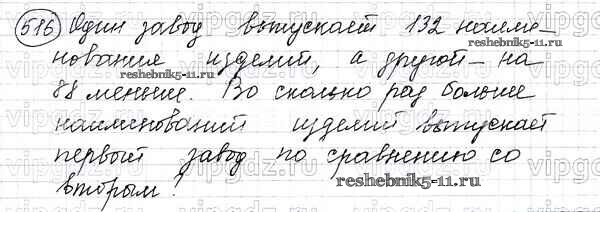 516 Один завод выпускает 132 наиме-
нования изделий, а другой – на
88 меньше. Во сколько раз больше
наименований изделий выпускает
первый завод по сравнению со
вторым?
reshebnik5-11.ru
reshebnik5-11.ru
reshebnik5-11.ru